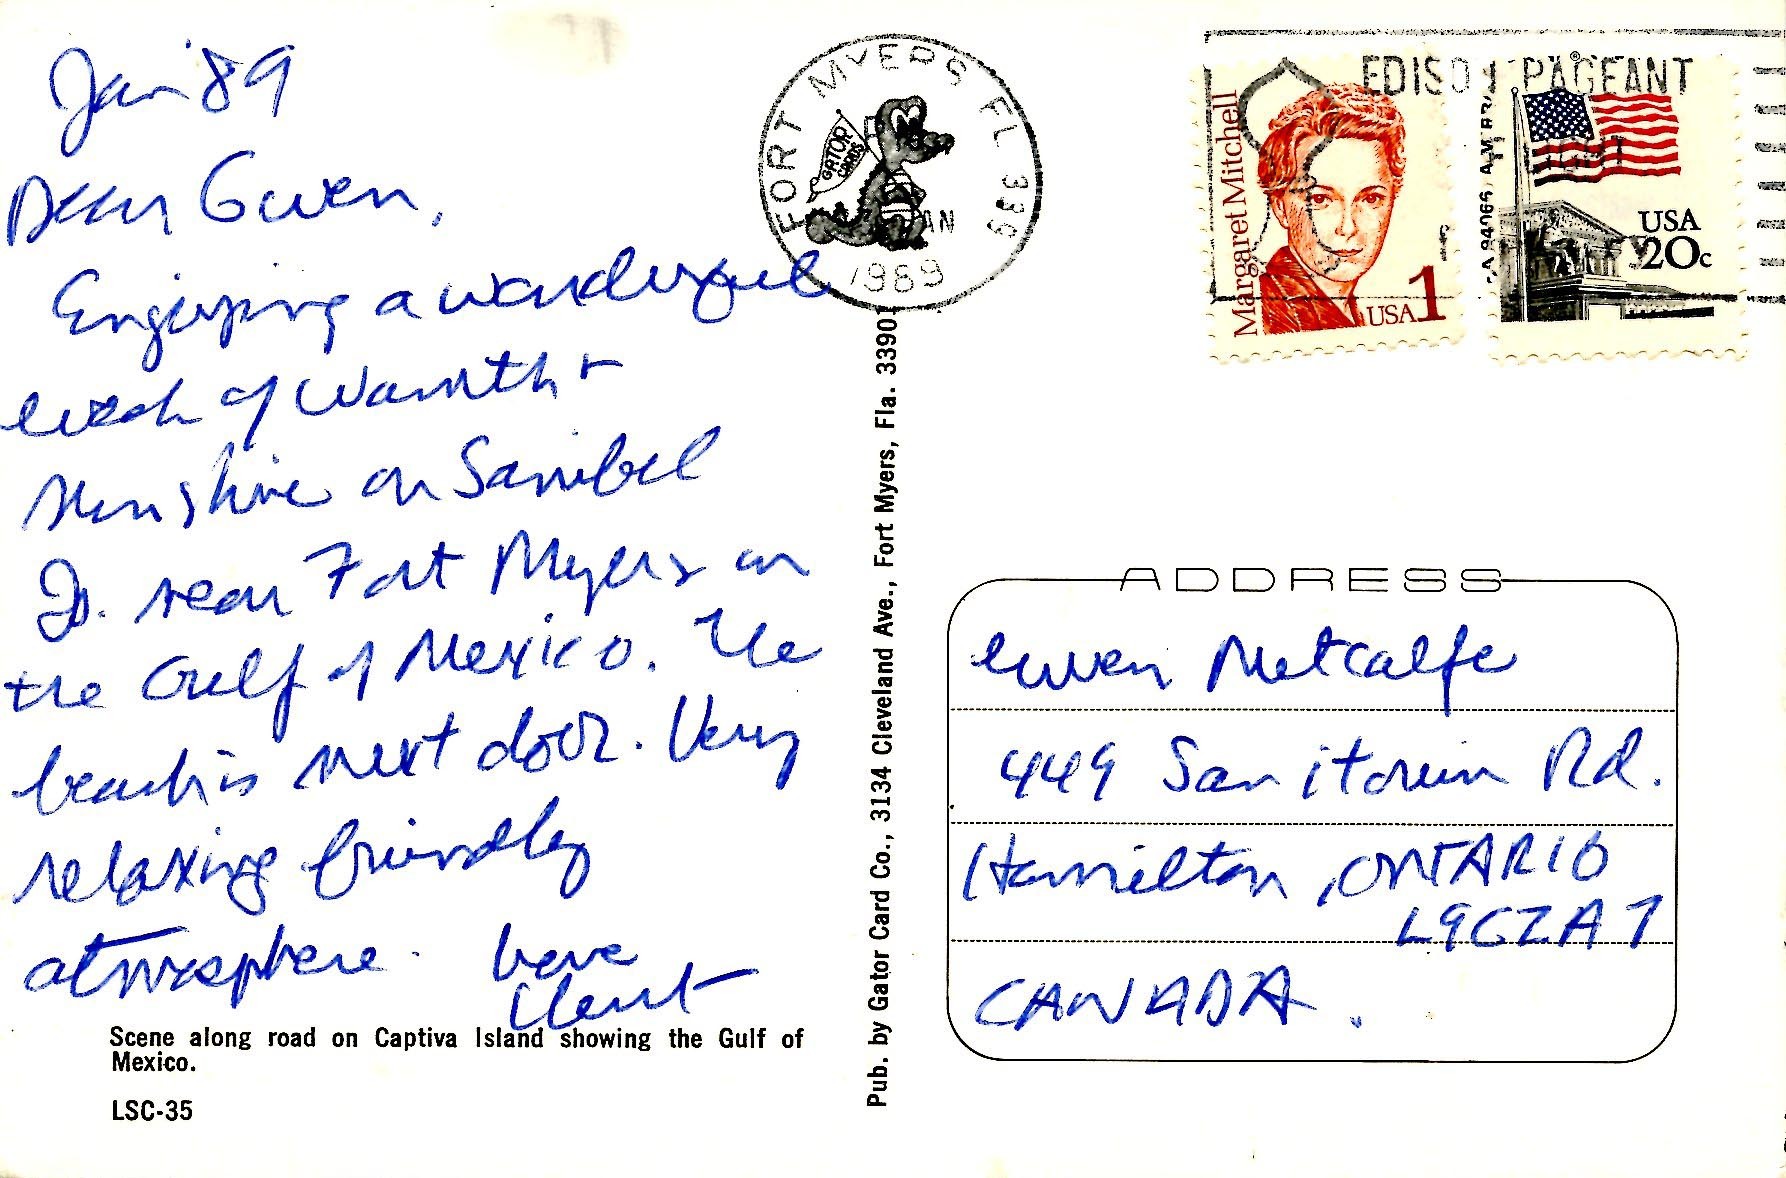 Jan '89
Dear Gwen,
Enjoying a wonderful
week of warmth +
sunshine on Sanibel
Is. near Fort Myers on
the Gulf of Mexico. The
beach is next door. Very
relaxing friendly
atmosphere. Love
Scene along road on Captiva Island showing the Gulf of
Mexico.
LSC-35
Pub. by Gator Card Co., 3134 Cleveland Ave., Fort Myers, Fla. 33901
FORT MYERS FL 339
GATOR
CARDS
JAN
1989
EDISON PAGEANT
OF LIGHT
Margaret Mitchell
USA 1
USA
20c
ADDRESS
Gwen Metcalfe
449 Sanitorium Rd.
Hamilton, ONTARIO
L9C 2A7
CANADA.